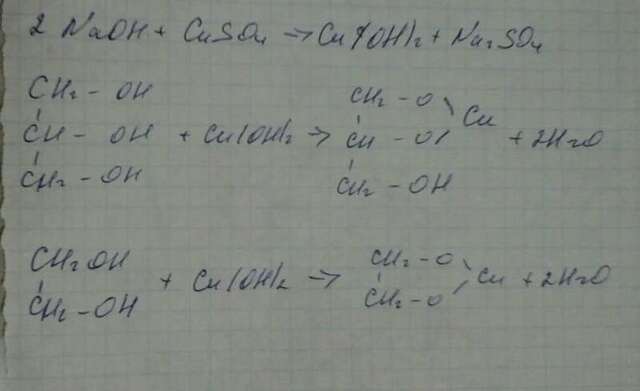 2 NaOH + CuSO₄ → Cu(OH)₂ + Na₂SO₄
CH₂ - OH CH₂ - O \
CH - OH + Cu(OH)₂ → CH - O / Cu + 2H₂O
CH₂ - OH CH₂ - OH
CH₂OH CH₂ - O \
CH₂ - OH + Cu(OH)₂ → CH₂ - O / Cu + 2H₂O